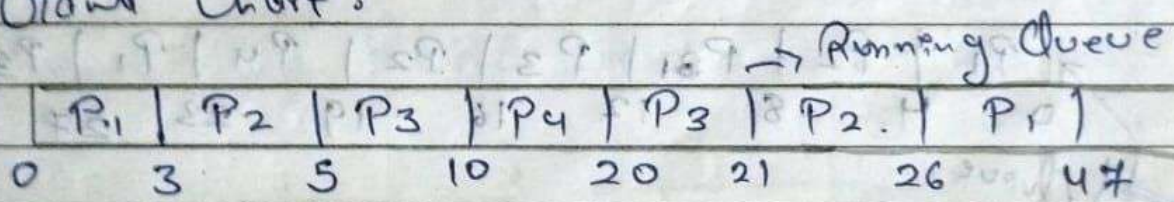 Chart:
→ Running Queue
P1 | P2 | P3 | P4 | P3 | P2. | P1
0 3 5 10 20 21 26 47